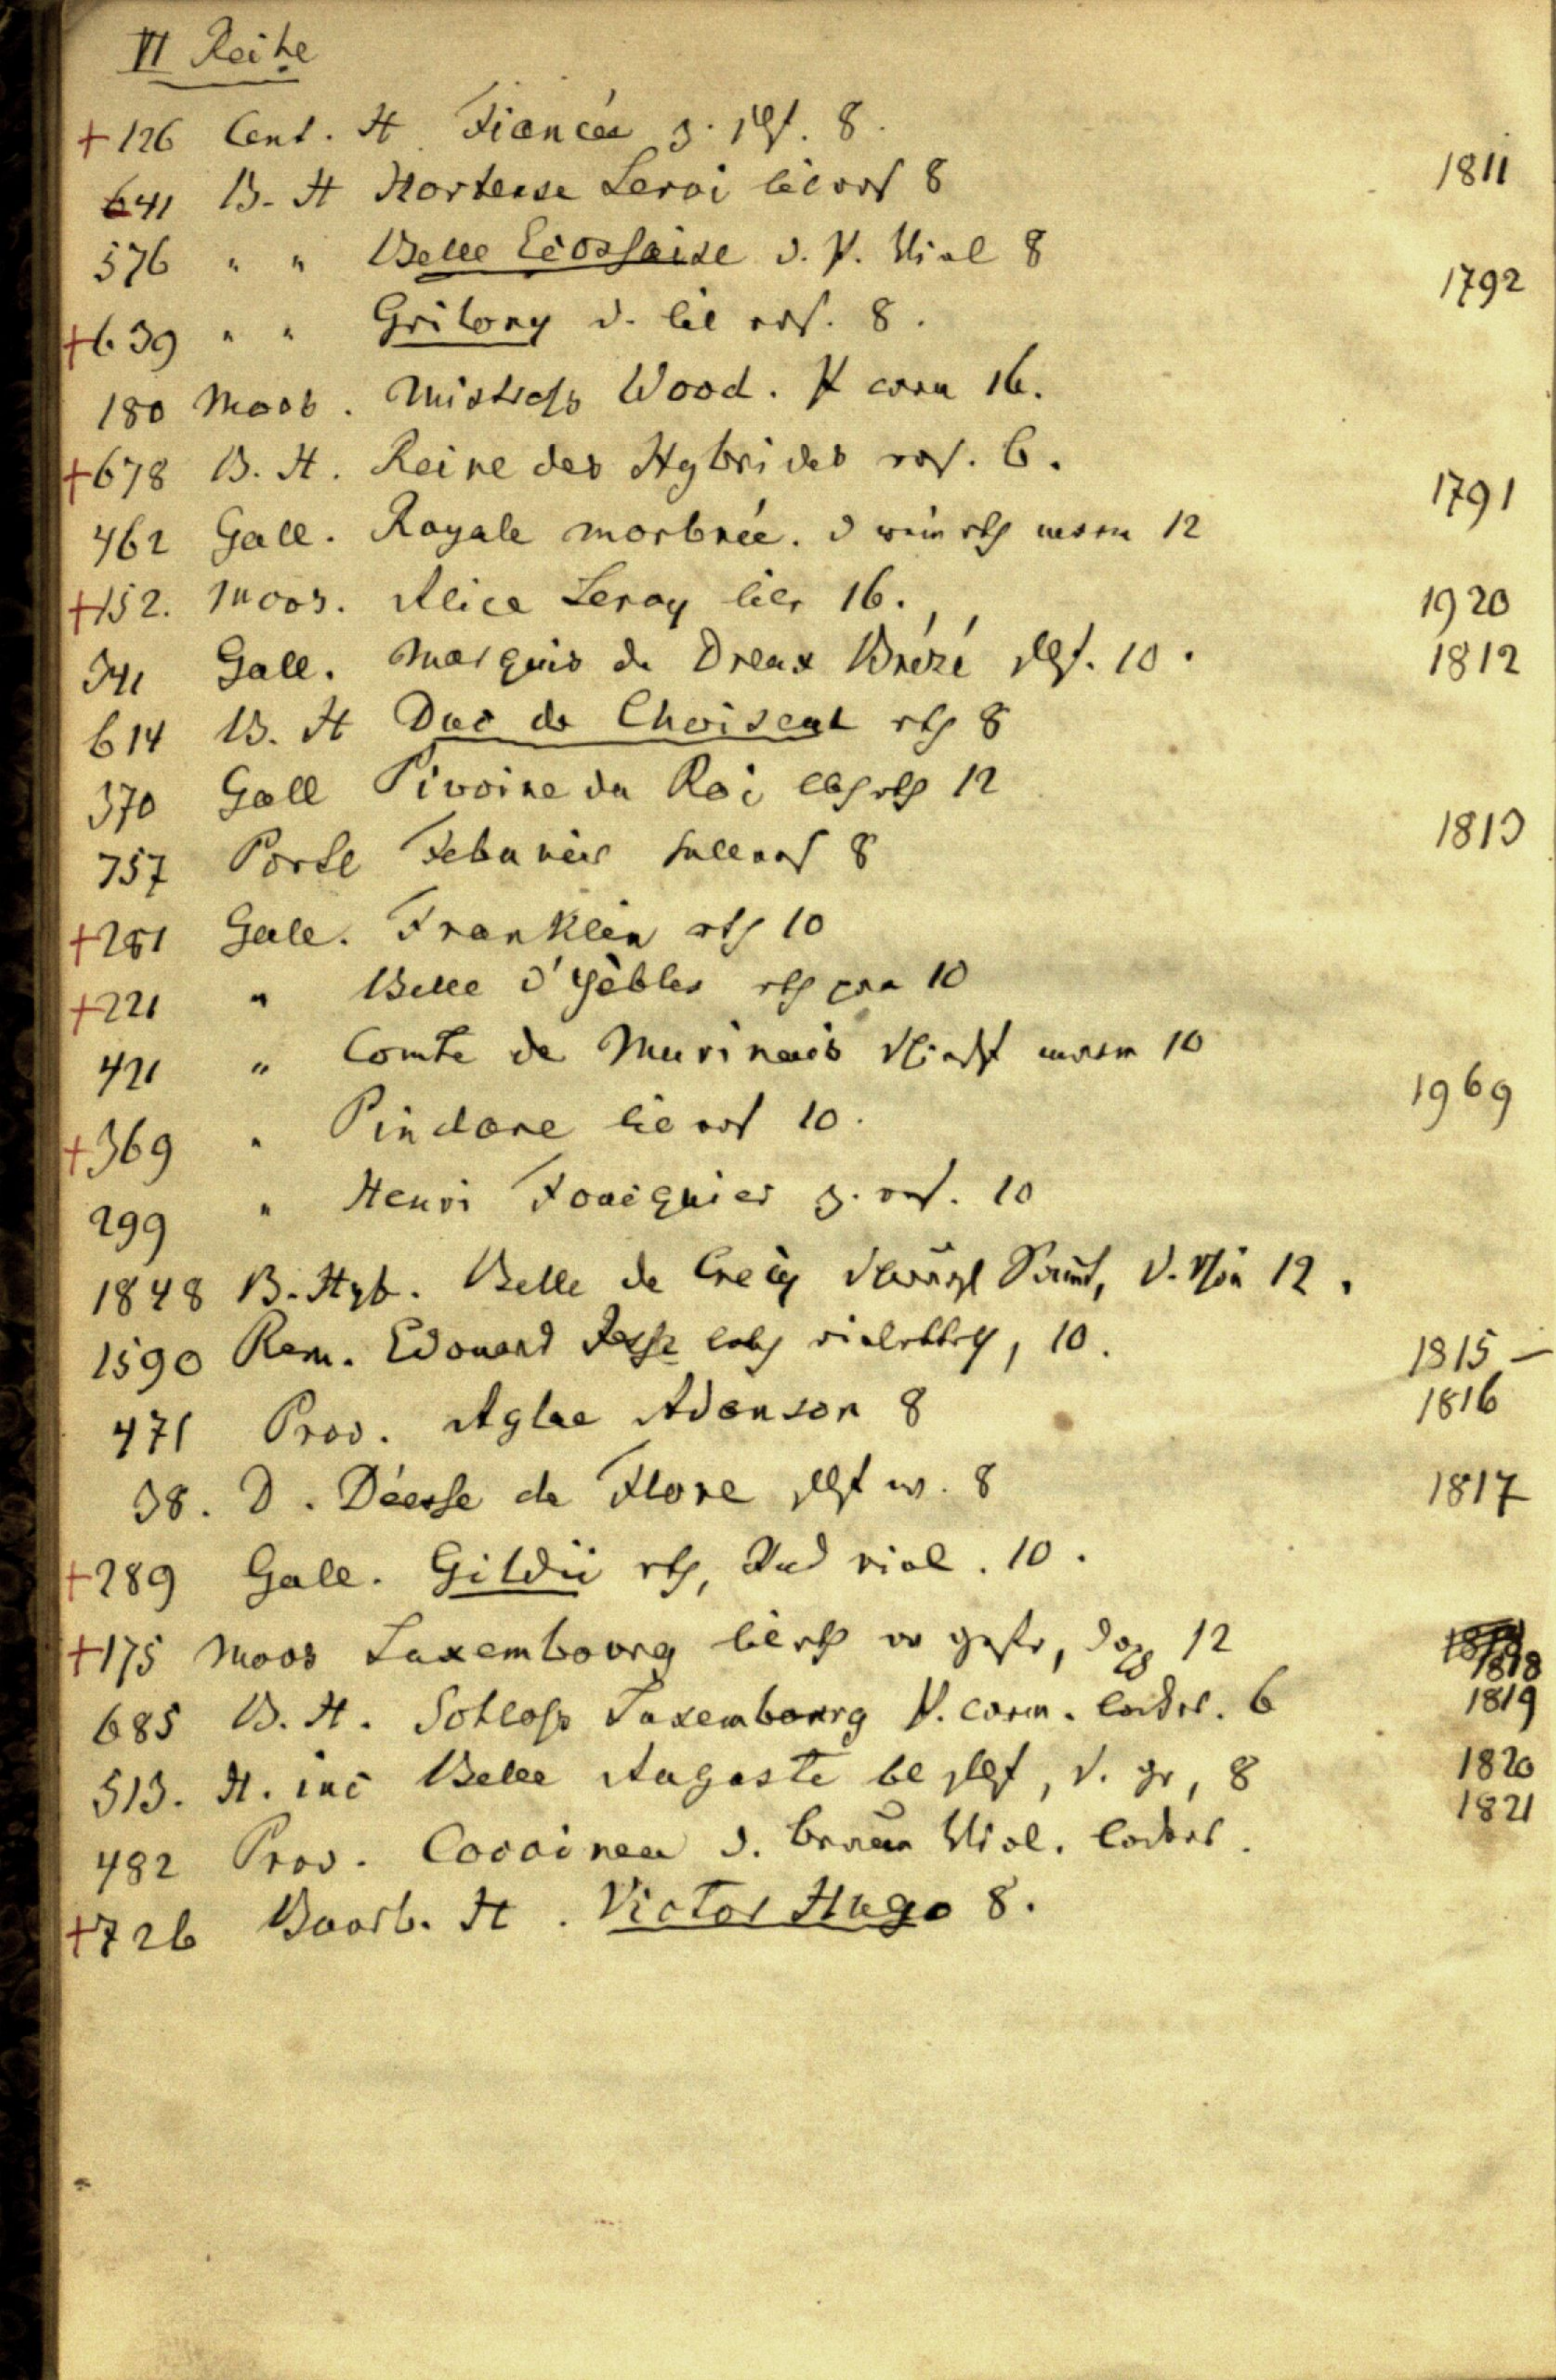 VI Reihe
+126 Cent. H. Fiancée z. 8.
641 B. H Hortense Leroi lilaros 8 1811
576 " " Belle Ecossaise d. P. Viol 8 1792
+639 " " Gritony d. lil ros. 8.
180 Moos. Mistress Wood. P carm 16.
+678 B. H. Reine des Hybrides ros. 6.
462 Gall. Royale marbrée. d weinrth marm 12 1791
+152. Moos. Alice Leroy lila 16. 1920
341 Gall. Marquis de Dreux Brézé 10. 1812
614 B. H Duc de Choiseul rth 8
370 Gall Pivoine du Roi lebh rth 12
757 Portl Febuneir hellros 8 1813
+281 Gall. Franklin rth 10
+221 " Belle d'Yèbles rth 10
421 " Comte de Murinais marm 10
+369 " Pindare lil ros 10. 1969
299 " Henri Fouiquier z. ros. 10
1848 B. Hyb. Belle de Crecy Samt, 12.
1590 Rem. Edouard Jesse lebh violettrth, 10. 1815 —
471 Prov. Aglae Adanson 8 1816
38. D. Déesse de Flore w. 8 1817
+289 Gall. Gildii rth, Rnd viol. 10.
+175 Moos Luxembourg lilrth 12 1818
685 B. H. Schloss Luxembourg P. carm. locker. 6 1819
513. H. inc Belle Auguste bl , 8 1820
482 Prov. Cocoinea d. braun Viol. locker. 1821
+726 Bourb. H. Victor Hugo 8.